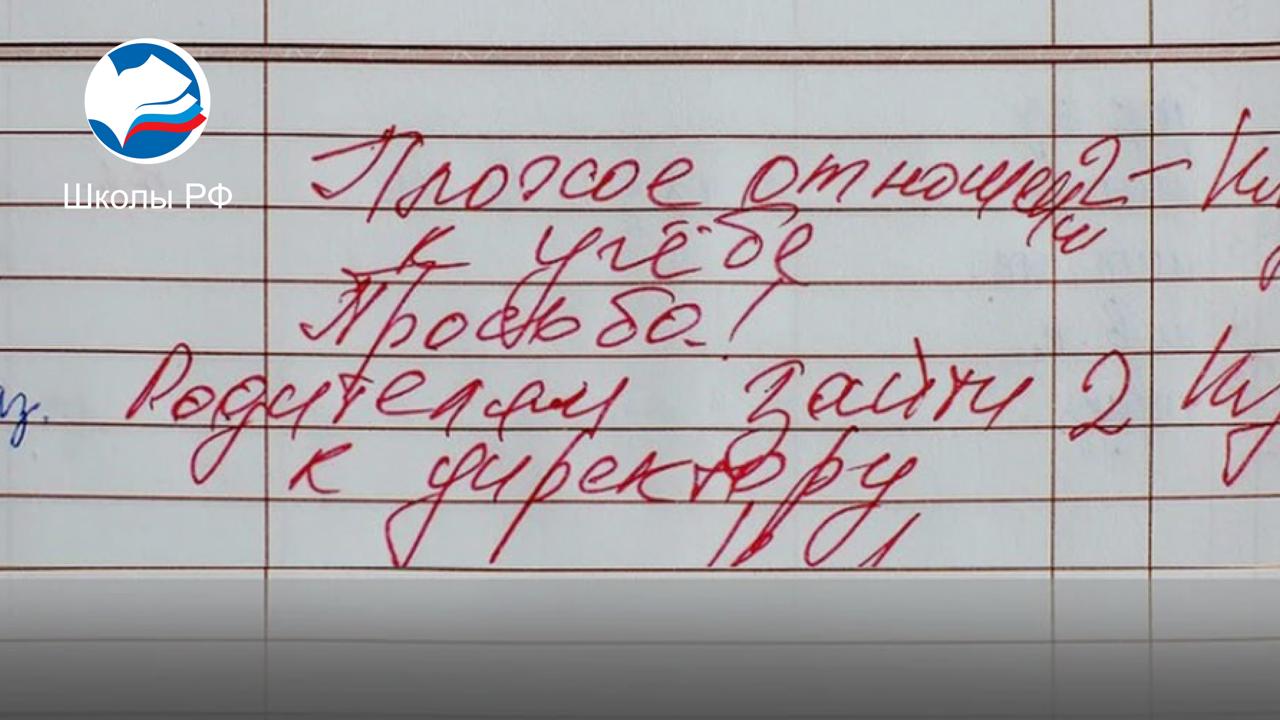 Школы РФ
Плохое отношени 2-
к учёбе
Просьба!
аз. Родителям зайти 2
к директору